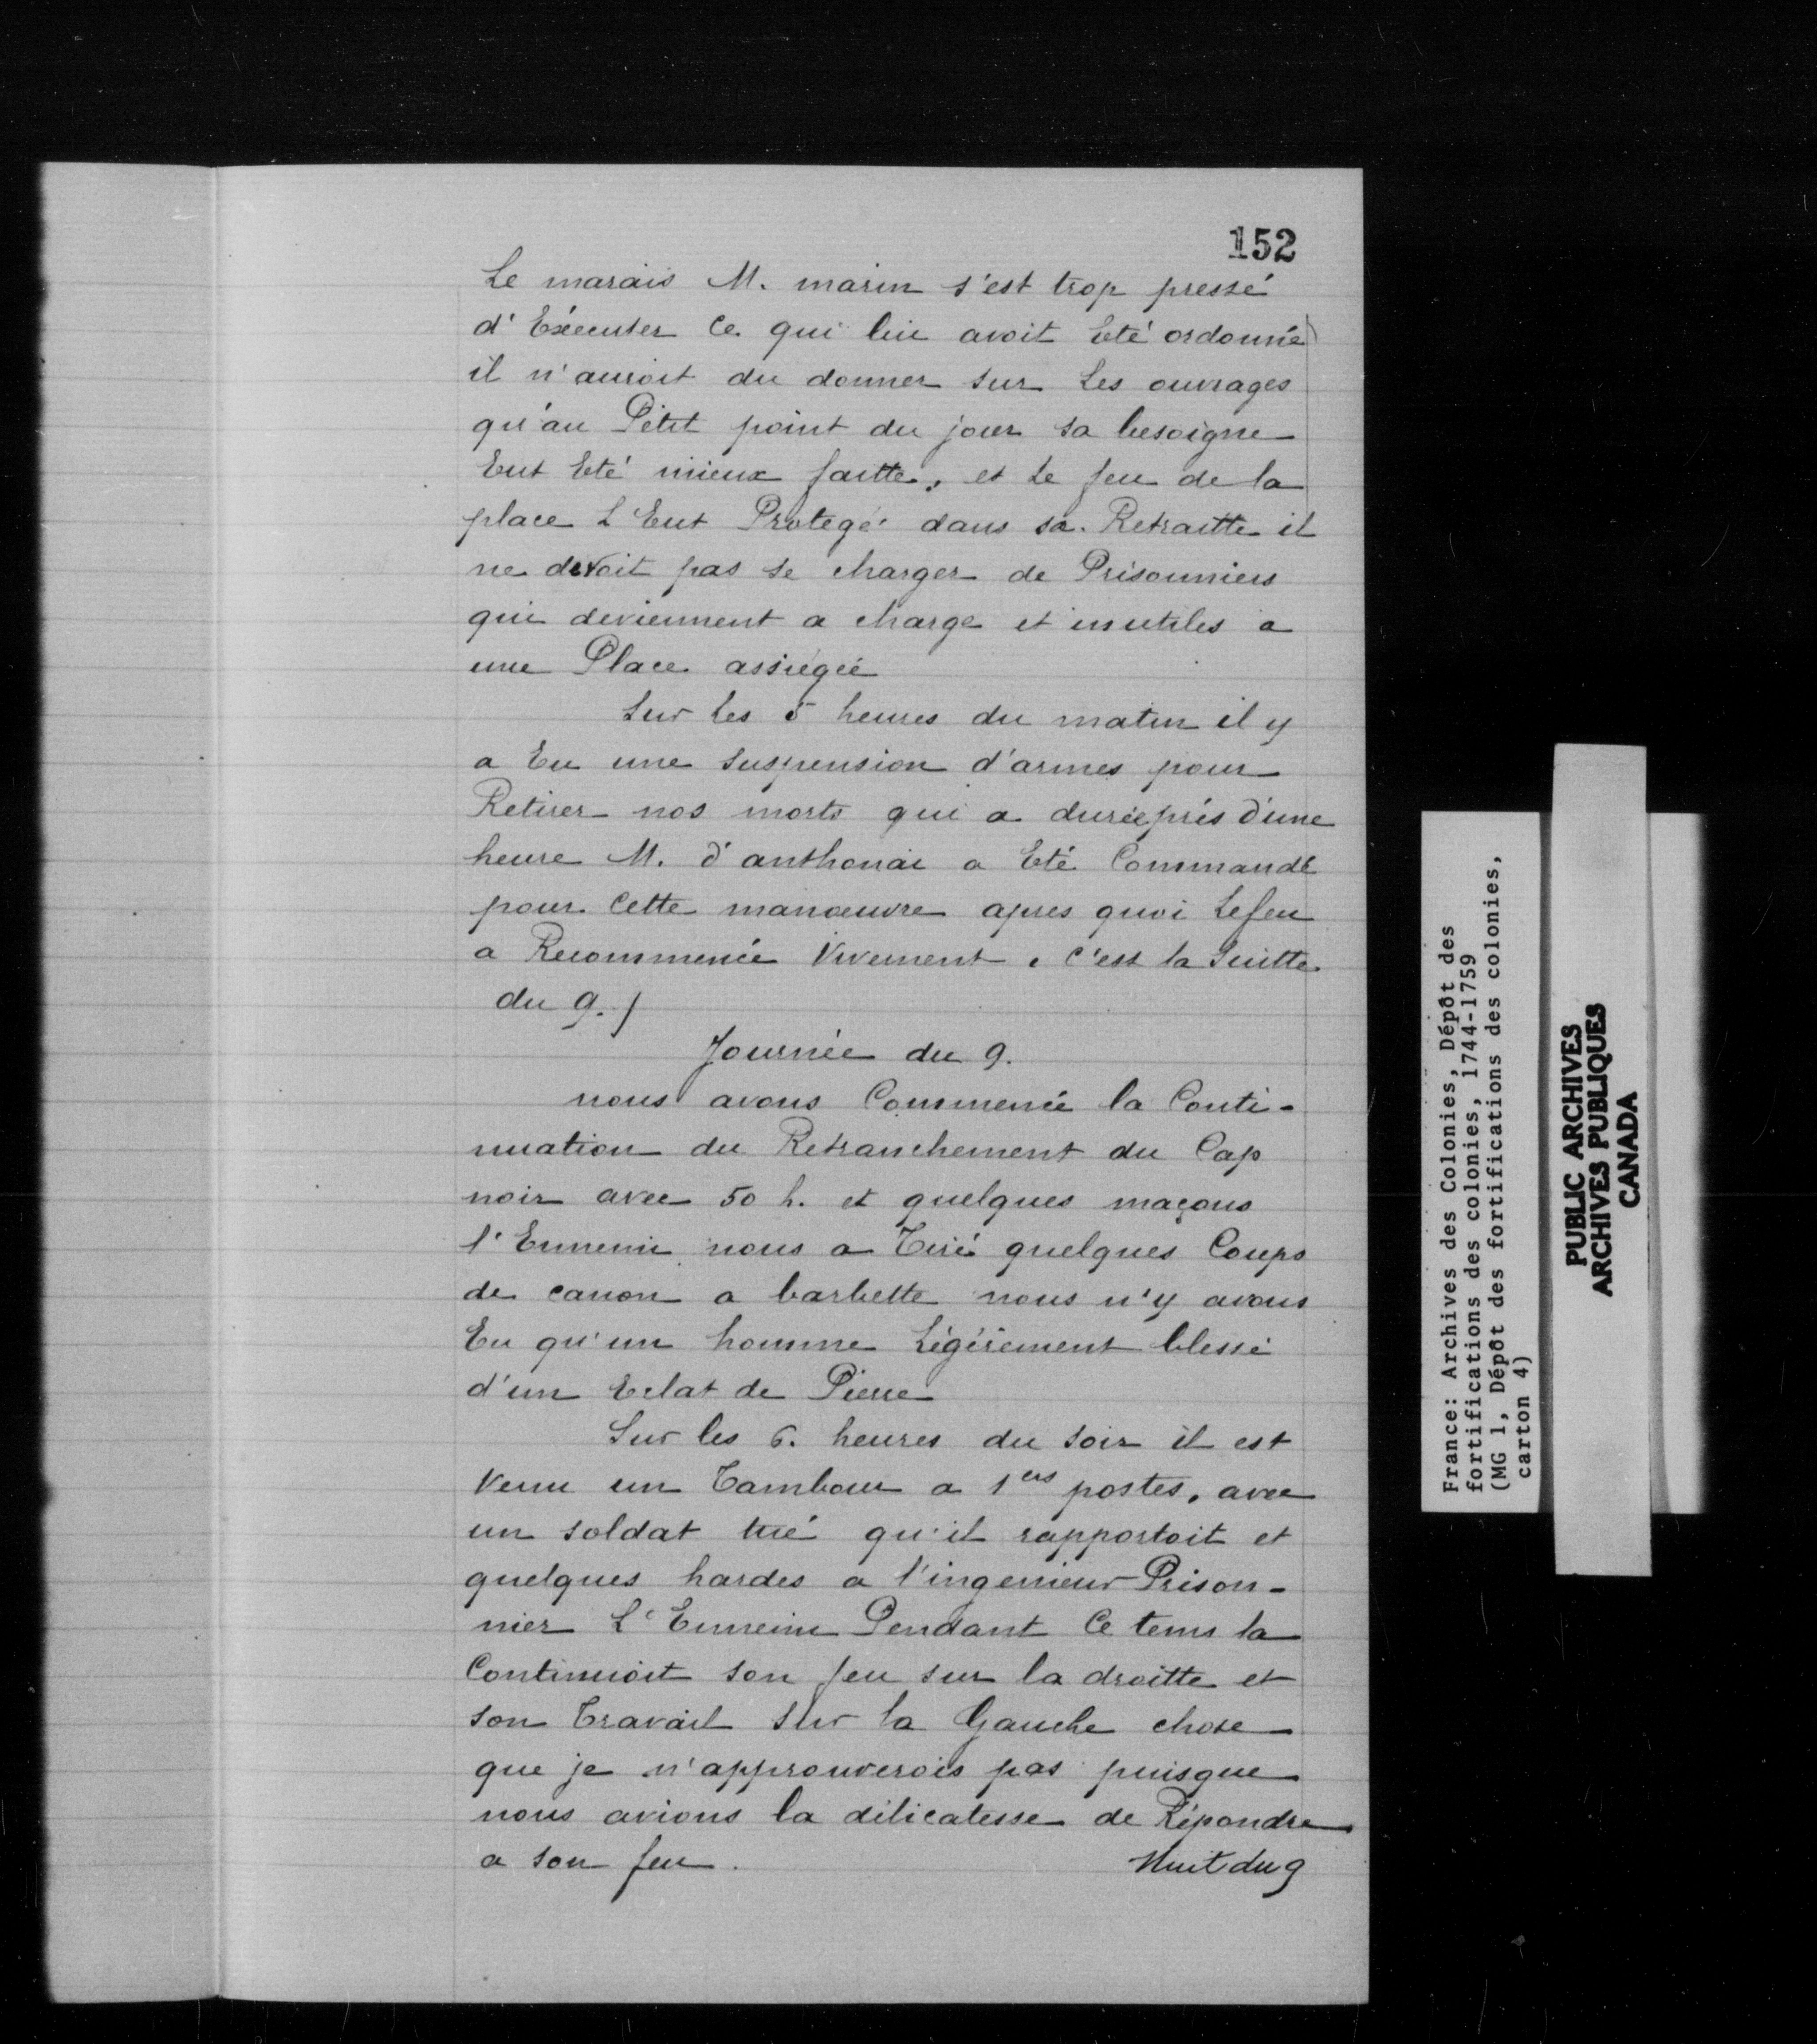 152
Le marais M. marin s'est trop pressé
d'Exécuter Ce qui lui avoit Eté ordonné
il n'auroit du donner sur Les ouvrages
qu'au Petit point du jour sa besoigne
Eut Eté mieux faitte, et Le feu de la
place L'Eut Protegé dans sa Retraitte il
ne devoit pas se charger de Prisonniers
qui deviennent a charge et inutiles a
une Place assiegée
Sur Les 5 heures du matin il y
a Eu une suspension d'armes pour
Retirer nos morts qui a durée près d'une
heure M. d'anthonai a Eté Commandé
pour Cette manœuvre apres quoi Le feu
a Recommencé Vivement. C'est la Suitte
du 9./
Journée du 9.
nous avons Commencé la Conti-
nuation du Retranchement du Cap
noir avec 50 h. et quelques maçons
l'Ennemi nous a Tiré quelques Coups
de canon a barbette nous n'y avons
Eu qu'un homme Légérement blessé
d'un Eclat de Pierre
Sur les 6. heures du soir il est
Venu un Tambour a 1ers postes, avec
un soldat tué qu'il rapportoit et
quelques hardes a l'ingenieur Prison-
nier L'Ennemi Pendant Ce tems la
Continuoit son feu sur la droitte et
son Travail sur la Gauche chose
que je n'approuverois pas puisque
nous avions la délicatesse de Répondre
a son feu. Nuit du 9
France: Archives des Colonies, Dépôt des
fortifications des colonies, 1744-1759
(MG 1, Dépôt des fortifications des colonies,
carton 4)
PUBLIC ARCHIVES
ARCHIVES PUBLIQUES
CANADA